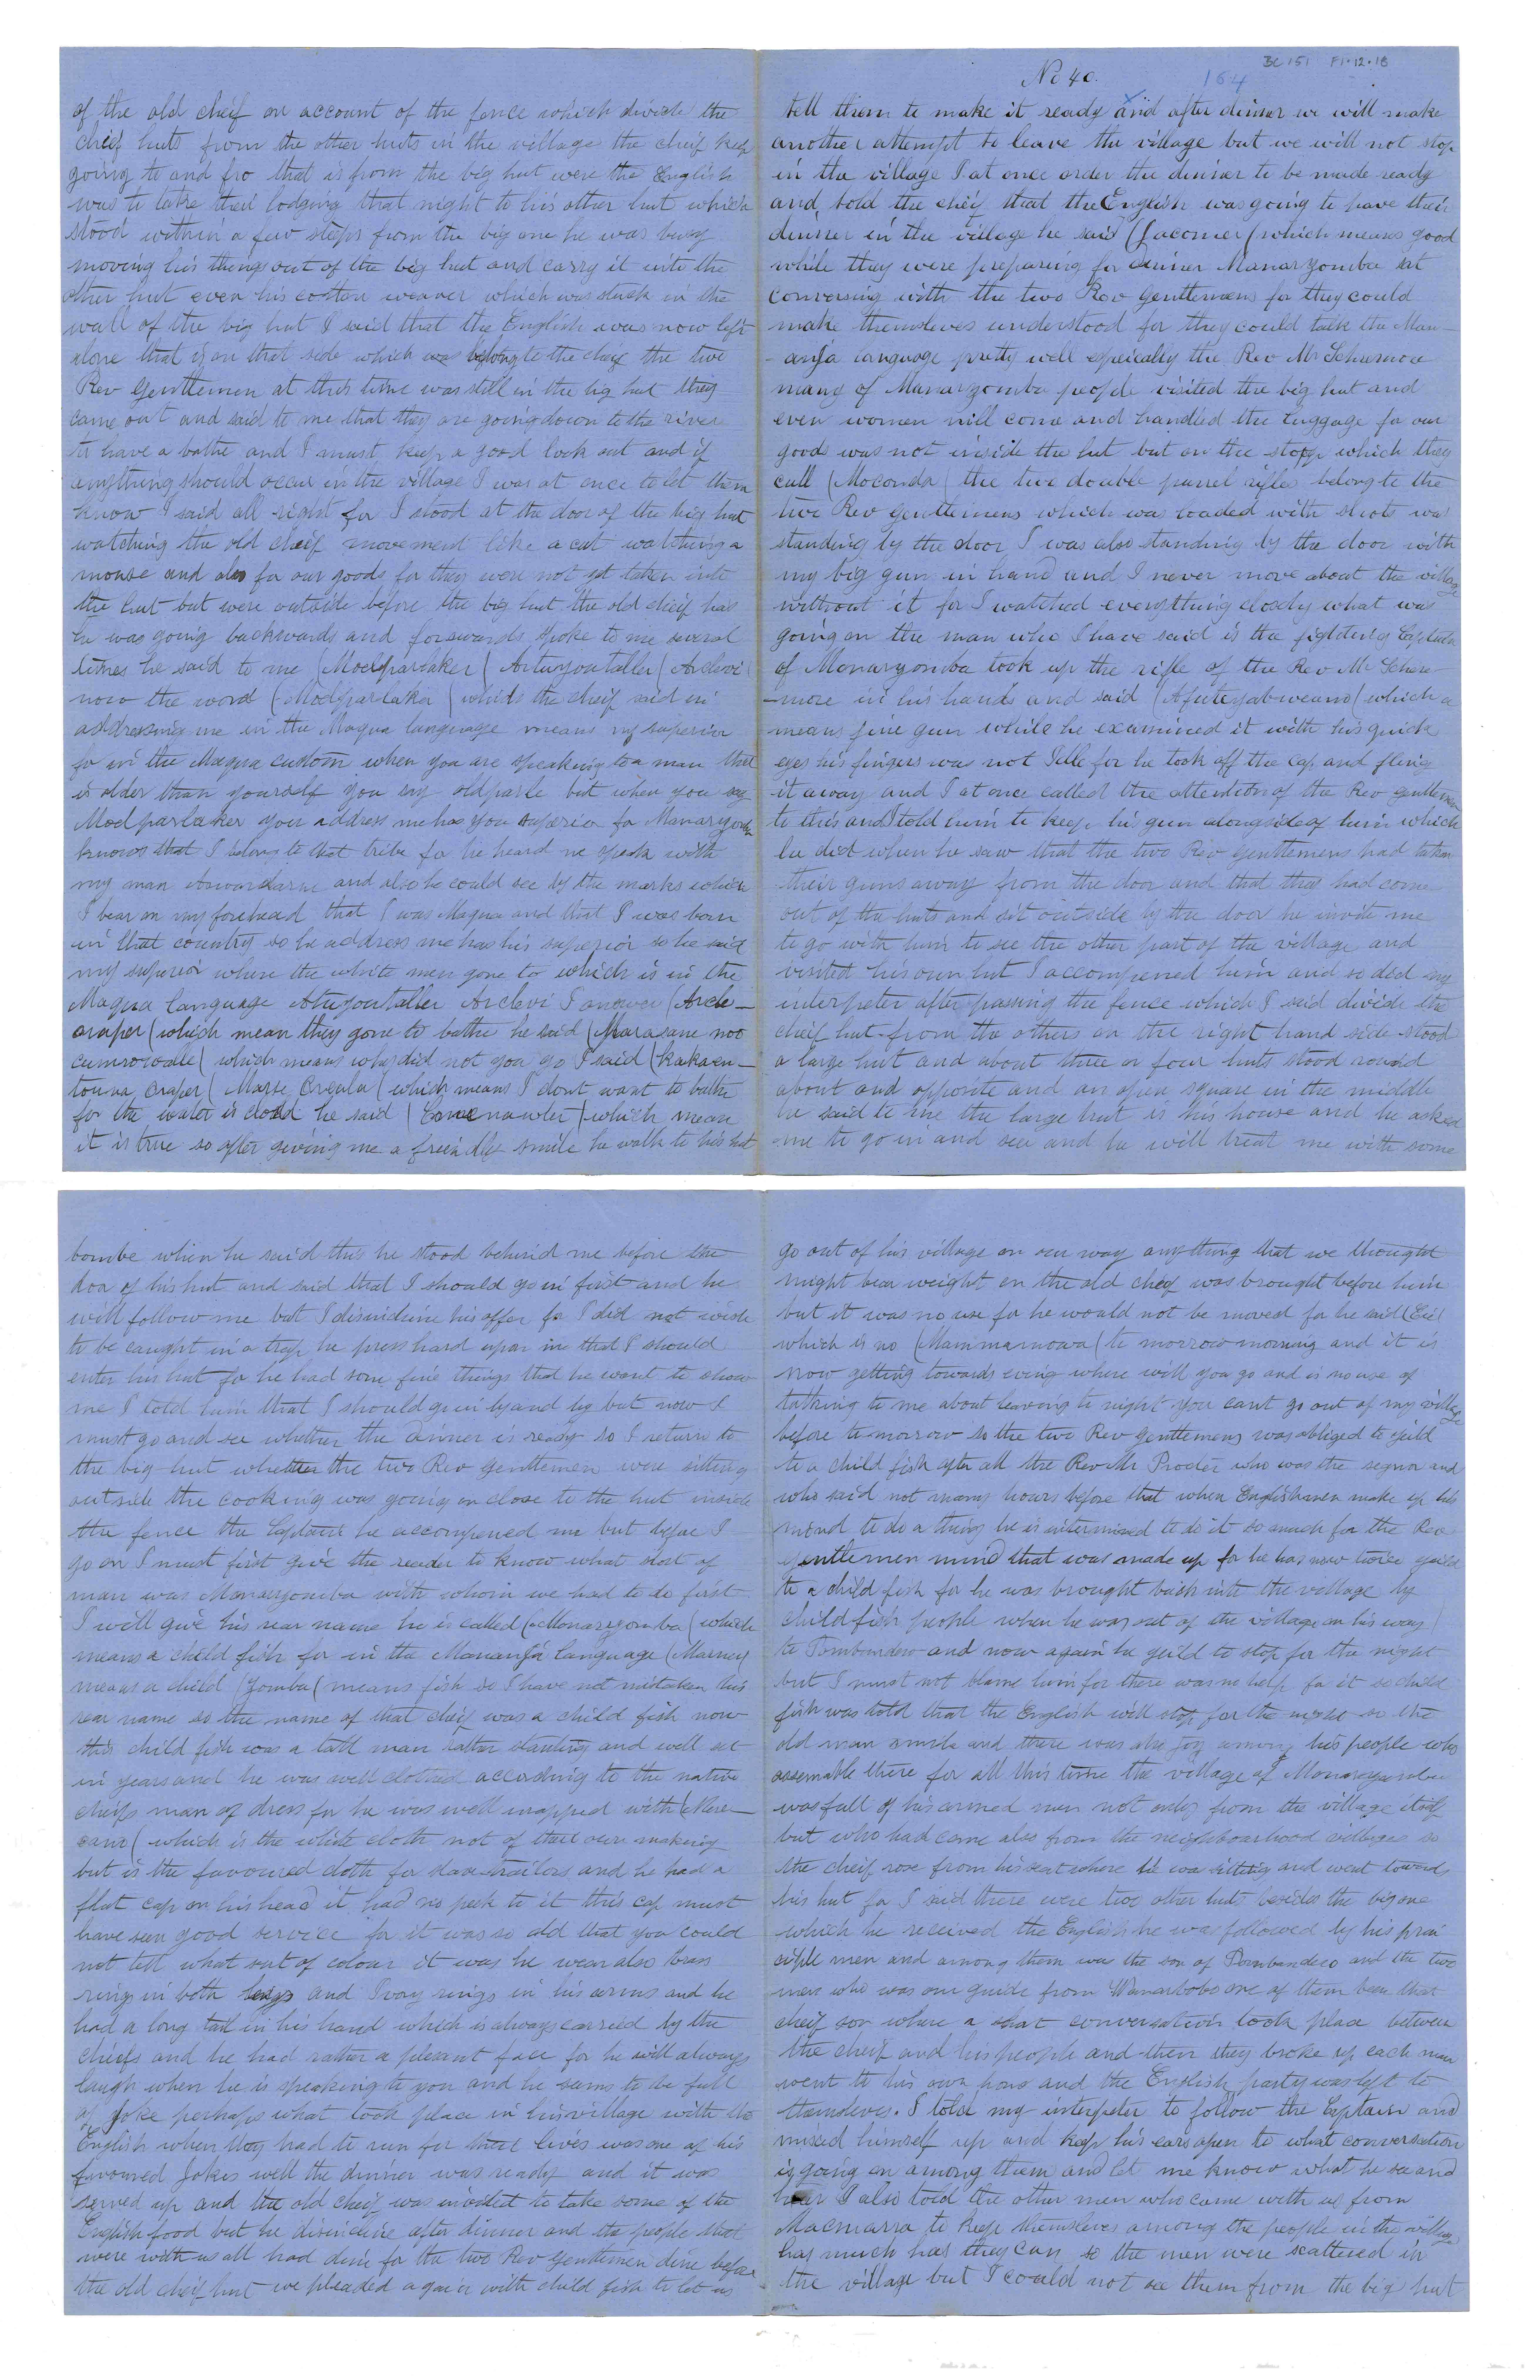 BC 151 F1.12.18
164
No 40.
tell them to make it ready and after dinner we will make
another attempt to leave the village but we will not stop
in the village I at once order the dinner to be made ready
and told the cheif that the English was going to have their
dinner in the village he said (Jacomer( which means good
while they were preparing for dinner Manaryomba sat
conversing with the two Rev Gentlemens for they could
make themselves understood for they could talk the Man-
-anja language pretty well especially the Rev Mr
many of Manaryomba people visited the big hut and
even women will come and handled the luggage for our
goods was not inside the hut but on the stopp which they
call (Moconda( the two double parrel rifles belong to the
two Rev gentlemens which was loaded with shots was
standing by the door I was also standing by the door with
my big gun in hand and I never move about the village
without it for I watched everything closely what was
going on the man who I have said is the fighting Captain
of Monaryomba took up the rifle of the Rev Mr Schere-
-more in his hands and said (Afuteyabweano( which a
means fine gun while he examined it with his quick
eyes his fingers was not Still for he took off the cap and fling
it away and I at once called the attention of the Rev gentlemen
to this and I told him to keep his gun alongside of him which
he did when he saw that the two Rev gentlemens had taken
their guns away from the door and that they had come
out of the huts and sit outside by the door he invite me
to go with him to see the other part of the village and
visited his own hut I accompened him and so ded my
interpreter after passing the fence which I said divide the
cheif hut from the others on the right hand side stood
a large hut and about three or four huts stood round
about and opposite and an open square in the middle
he said to me the large hut is his house and he asked
me to go in and see and he will treat me with some
bombe when he said this he stood behind me before the
door of his hut and said that I should go in first and he
will follow me but I disincline his offer for I did not wish
to be caught in a trap he press hard upon me that I should
enter his hut for he had some fine things that he want to show
me I told him that I should go in by and by but now I
must go and see whether the dinner is ready so I return to
the big hut whether the two Rev Gentlemen were sitting
outside the cooking was going on close to the hut inside
the fence the Captain he accompened me but before I
go on I must first give the reader to know what sort of
man was Manaryomba with whom we had to do first
I will give his rear name he is called (Monaryomba( which
means a child fish for in the Mananja Language (Marney
means a child (Yomba( means fish so I have not mistaken his
rear name so the name of that cheif was a child fish now
this child fish was a tall man rather slanting and well at
in years and he was well clothed according to the native
cheifs man of dress for he was well wrapped with (Mere-
-cano( which is the white cloth not of their own making
but is the favoured cloth for slave trailors and he had a
flat cap on his head it had no peek to it this cap must
have seen good service for it was so old that you could
not tell what sort of colour it was he wear also brass
rings in both legs and Ivory rings in his arms and he
had a long tail in his hand which is always carried by the
cheifs and he had rather a plesent face for he will always
laugh when he is speaking to you and he seems to be full
of Joke perhaps what took place in his village with the
English when they had to run for their lives was one of his
favoured Jokes well the dinner was ready and it was
served up and the old cheif was invited to take some of the
English food but he disincline after dinner and the people that
were with us all had dine for the two Rev gentlemen dine before
the old cheif hut we pleaded again with child fish to let us
go out of his village on our way anything that we thought
might bear weight on the old cheif was brought before him
but it was no use for he would not be moved for he said (Eie(
which is no (Mammamowa( to morrow morning and it is
now getting towards evening where will you go and is no use of
talking to me about leaving to night you cant go out of my village
before to morrow so the two Rev gentlemens was obliged to yeild
to a child fish after all the Rev Mr Procter who was the segnor and
who said not many hours before that when Englishmen make up his
mind to do a thing he is intermined to do it so much for the Rev
gentlemen mind that was made up for he has now twice yeild
to a child fish for he was brought back into the village by
child fish people when he was out of the village on his way
to Tombondero and now again he yeild to stop for the night
but I must not blame him for there was no help for it so child
fish was told that the English will stop for the night so the
old man smile and there was also joy among his people who
assemable there for all this time the village of Monaryomba
was full of his armed men not only from the village itself
but who had come also from the neighbourhood villages so
the cheif rose from his seat where he was sitting and went towards
his hut for I said there were two other huts besides the big one
which he received the English he was followed by his prin
ciple men and among them was the son of Tombondero and the two
men who was our guide from Manarbobo one of them been that
cheif son where a shot conversation took place between
the cheif and his people and then they broke up each man
went to his own hous and the English party was left to
themselves. I told my interpeter to follow the Captain and
mixed himself up and keep his ears open to what conversation
is going on among them and let me know what he see and
hear I also told the other men who came with us from
Macmarra to keep themselves among the people in the village
has much has they can so the men were scattered in
the village but I could not see them from the big hut
of the old cheif on account of the fence which divide the
cheif huts from the other huts in the village the cheif keep
going to and fro that is from the big hut were the English
was to take their lodging that night to his other hut which
stood within a few steps from the big one he was busy
moving his things out of the big hut and carry it into the
other hut even his cotton weaver which was stuck in the
wall of the big hut I said that the English was now left
alone that is on that side which was belong to the cheif the two
Rev Gentlemen at this time was still in the big hut they
came out and said to me that they are going down to the river
to have a bathe and I must keep a good look out and if
anything should occur in the village I was at once to let them
know I said all right for I stood at the door of the big hut
watching the old cheif movement like a cat watching a
mouse and also for our goods for they were not yet taken into
the hut but were outside before the big hut the old cheif has
he was going backwards and forwards spoke to me several
times he said to me (Modparlaker( Artuyoutaller( Arclevi
now the word (Modparlaka( whids the cheif said in
addressing me in the Maqua language means my superior
for in the Maqua custom when you are speaking to a man that
is older than yourself you say oldparle but when you say
Modparlaker you address me has you superior for Manaryomba
knows that I belong to that tribe for he heard me speak with
my man and also he could see by the marks which
I bear on my forehead that I was Maqua and that I was born
in that country so he address me has his superior so he said
my superior where the white men gone to which is in the
Maqua language Atuyoutaller Arclevi I answer (Arcle-
oraper( which mean they gone to bathe he said (Marasane noo
cumrowale( which means why did not you go I said (Kakaen-
touna oraper( Marse Oreula( which means I dont want to bathe
for the water is clodd he said (Comenawler( which mean
it is true so after giving me a freindly smile he walk to his hut